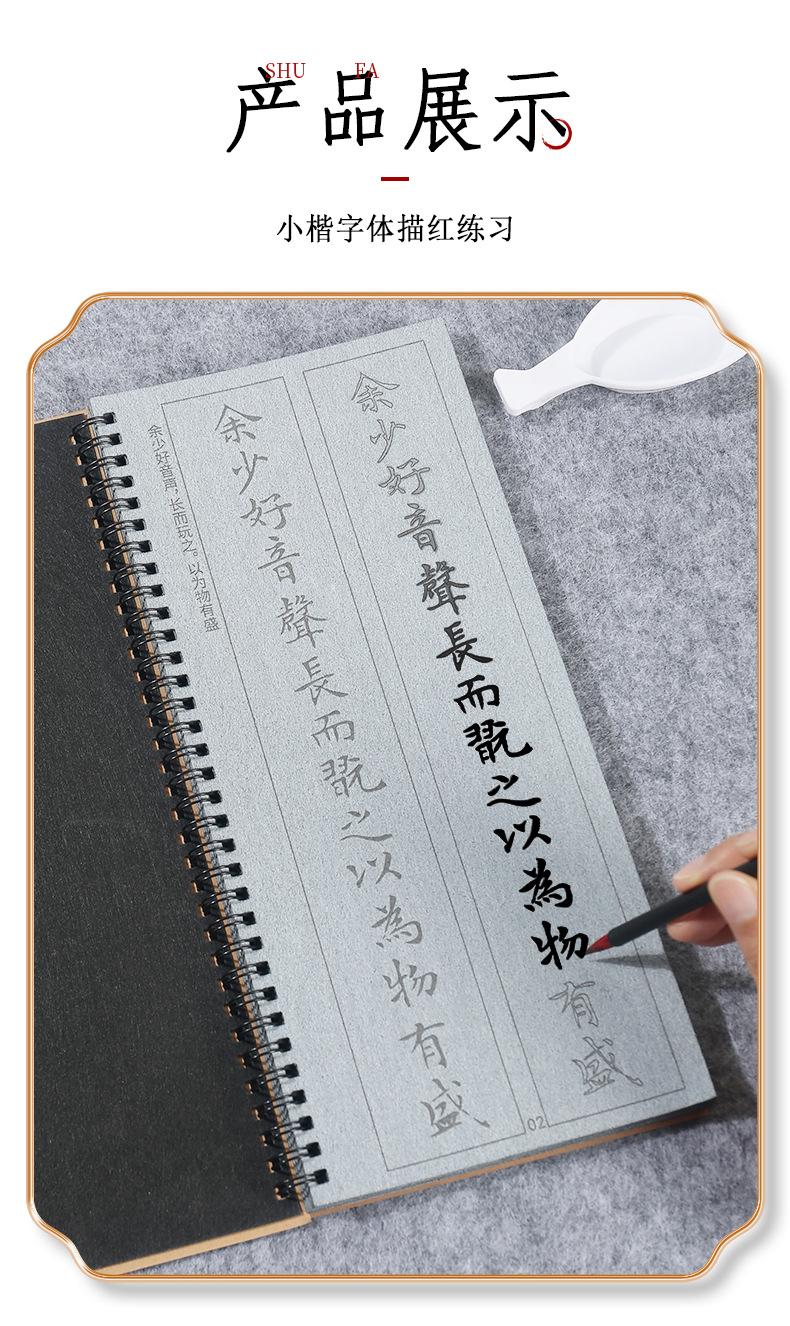 SHU FA
产品展示
小楷字体描红练习
余少好音聲長而翫之以為物有盛
余少好音聲長而翫之以為物有盛
余少好音声，长而玩之。以为物有盛
02